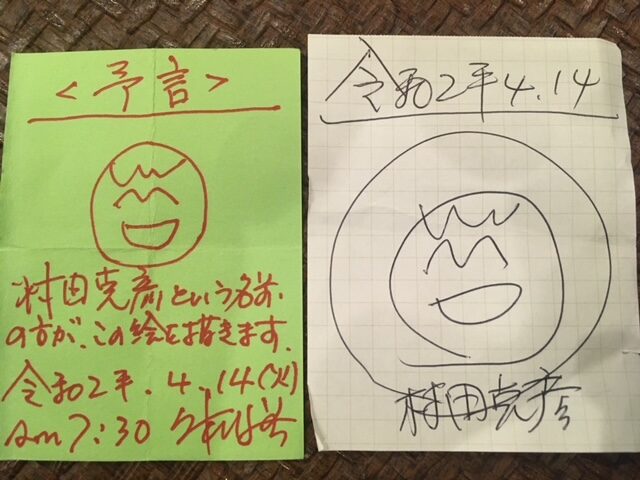 ＜予言＞
村田克彦という名前
の方が、この絵を描きます。
令和2年.4.14(火)
am7:30
令和2年4.14
村田克彦